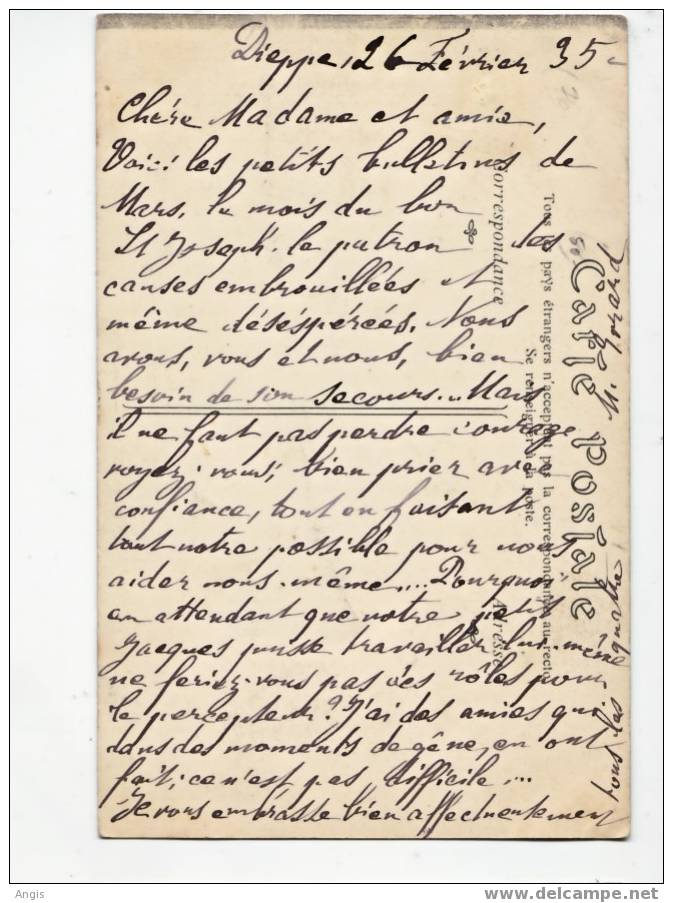 Dieppe, 26 Février 35
Chère Madame et amie,
Voici les petits bulletins de
Mars, le mois du bon
St Joseph. le patron des
causes embrouillées et
même déséspérées. Nous
avons, vous et nous, bien
besoin de son secours... Mais
il ne faut pas perdre courage
voyez-vous; bien prier avec
confiance, tout en faisant
tout notre possible pour nous
aider nous-même.... Pourquoi
en attendant que votre petit
Jacques puisse travailler lui-même
ne feriez-vous pas des rôles pour
le percepteur? J'ai des amies qui
dans des moments de gêne, en ont
fait; ce n'est pas difficile...
Je vous embrasse bien affectueusement
tous les quatre
Carte Postale
Tous les pays étrangers n'acceptent pas la correspondance au recto
Se renseigner à la poste.
Correspondance
Adresse
Angis
www.delcampe.net